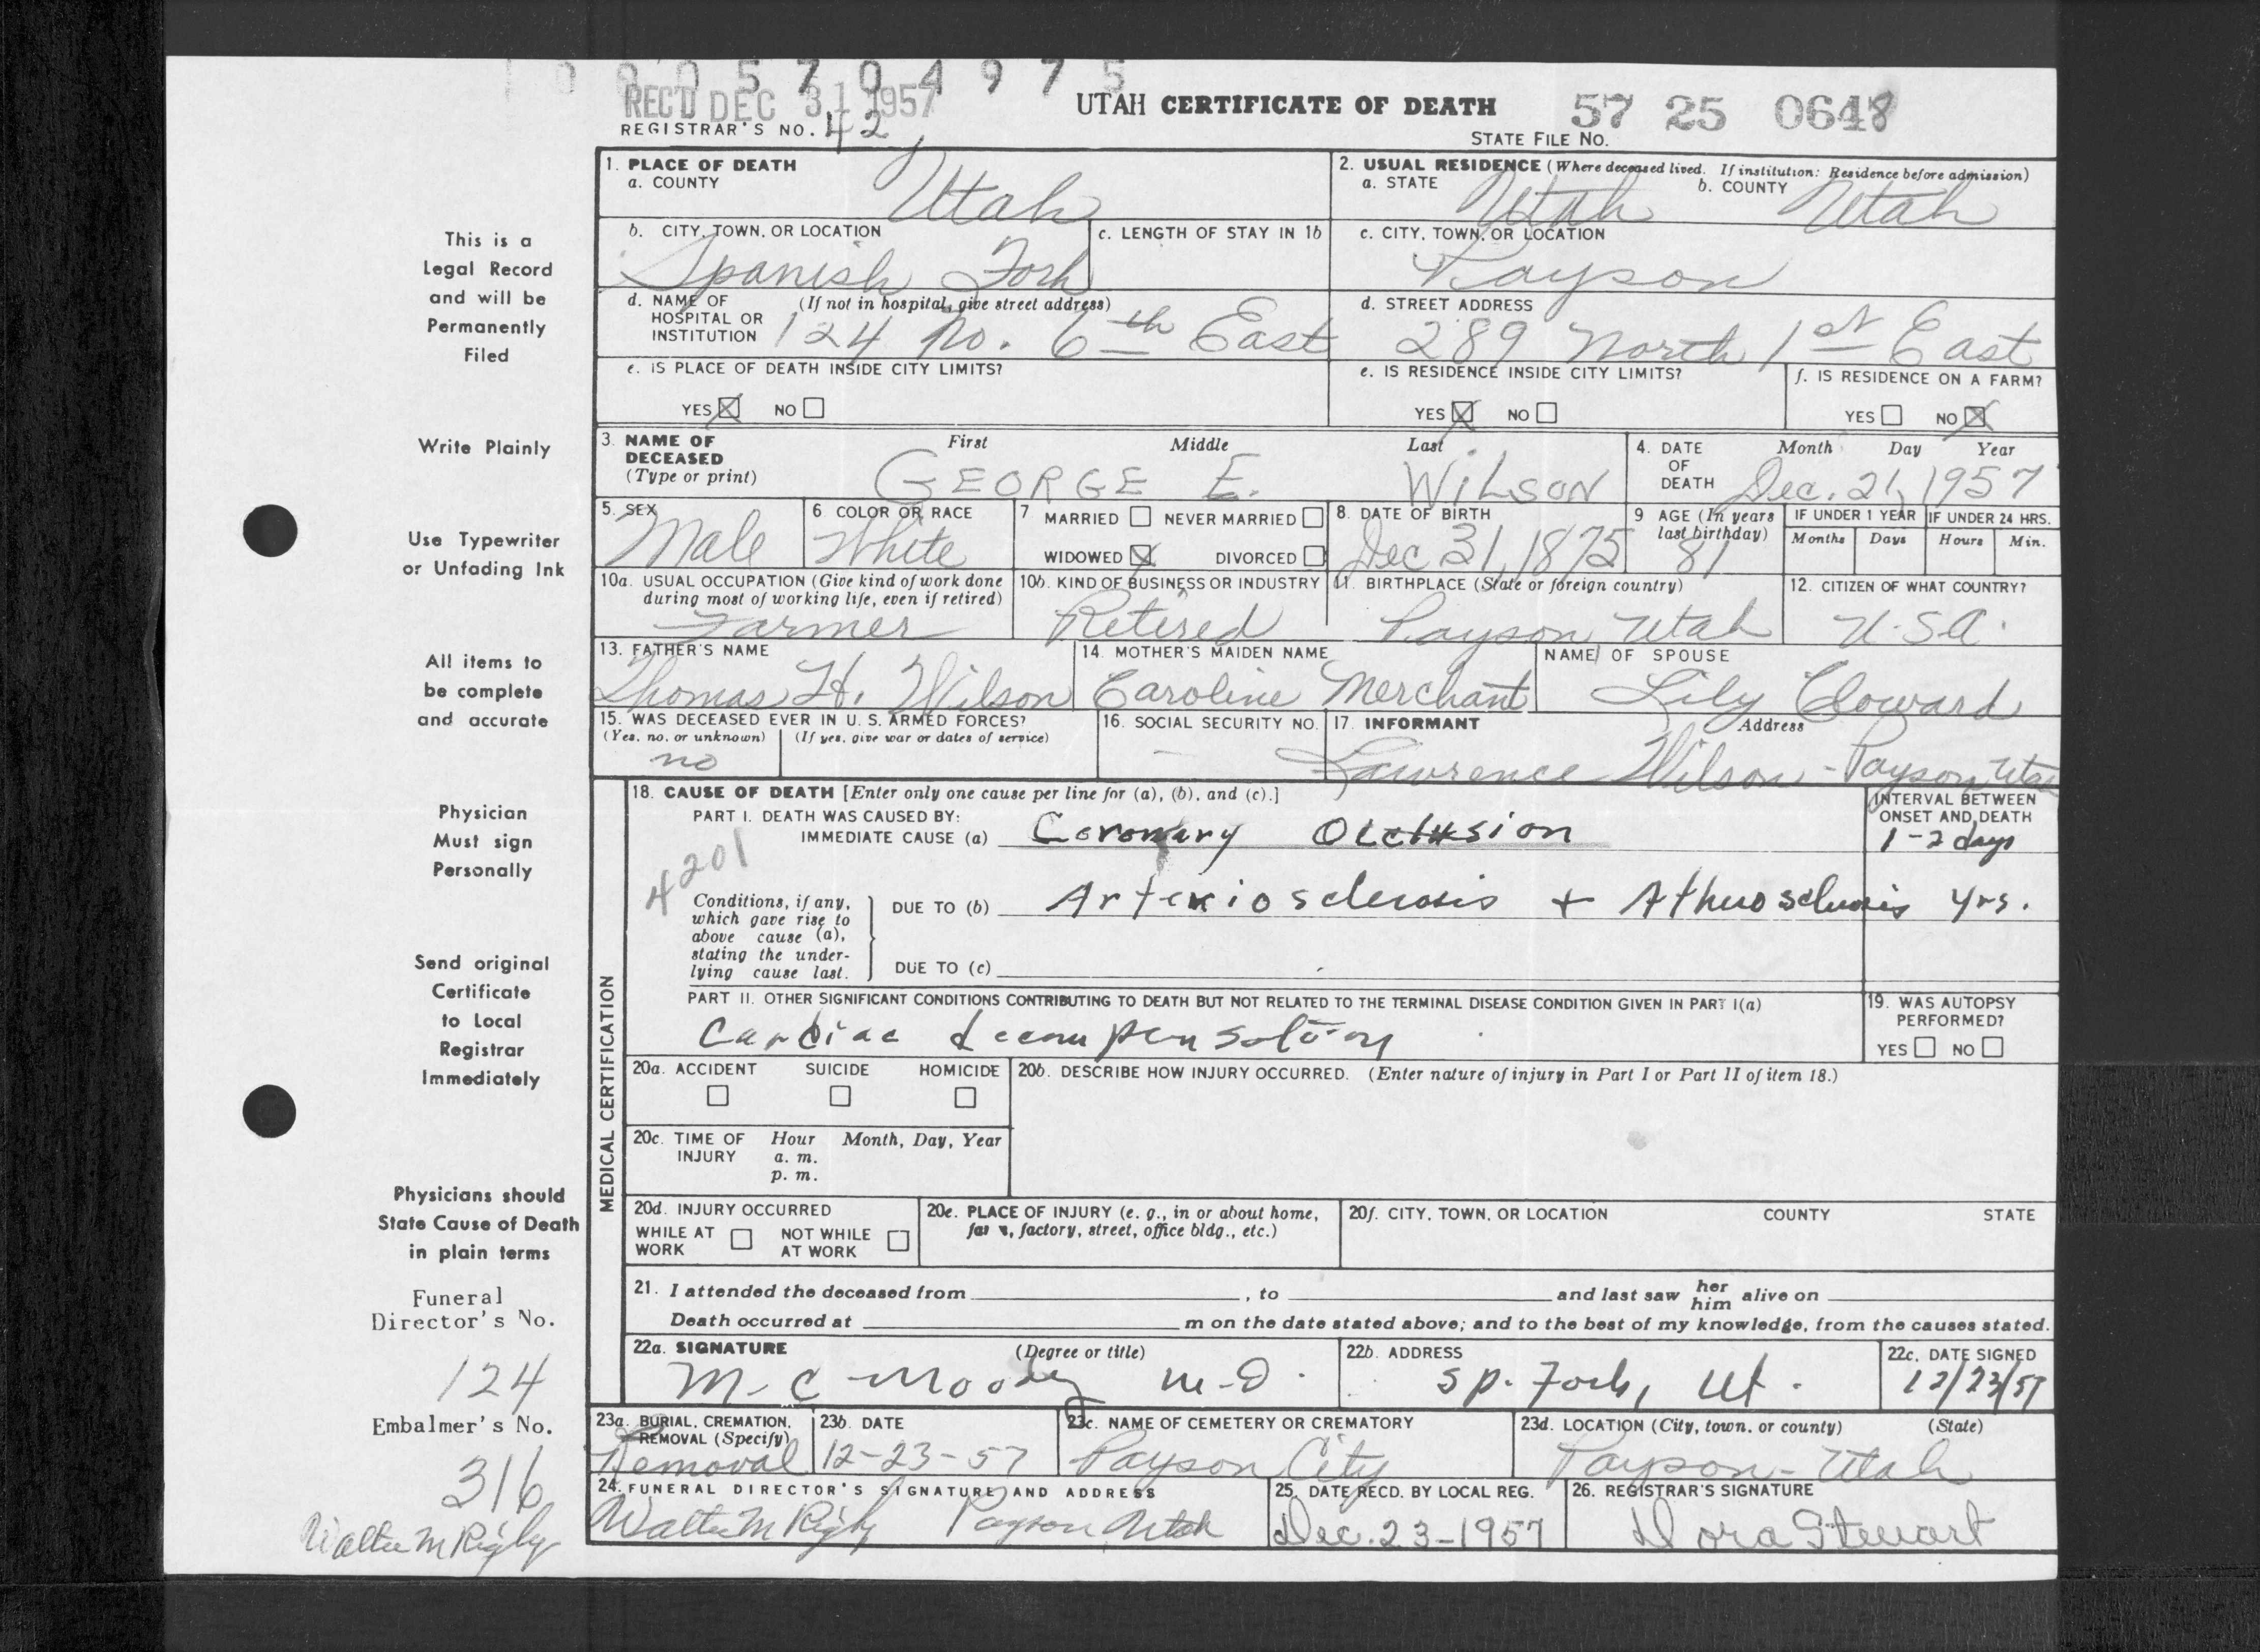 0 0 0 5 7 0 4 9 7 5
REC'D DEC 31 1957
UTAH CERTIFICATE OF DEATH
57 25 0648
REGISTRAR'S NO. 42
STATE FILE NO.
1. PLACE OF DEATH
a. COUNTY
Utah
2. USUAL RESIDENCE (Where deceased lived. If institution: Residence before admission)
a. STATE Utah b. COUNTY Utah
b. CITY, TOWN, OR LOCATION
Spanish Fork
c. LENGTH OF STAY IN 1b
c. CITY, TOWN, OR LOCATION
Payson
d. NAME OF (If not in hospital, give street address)
HOSPITAL OR
INSTITUTION 124 No. 6th East
d. STREET ADDRESS
289 North 1st East
e. IS PLACE OF DEATH INSIDE CITY LIMITS?
YES X NO
e. IS RESIDENCE INSIDE CITY LIMITS?
YES X NO
f. IS RESIDENCE ON A FARM?
YES NO X
3. NAME OF First Middle Last
DECEASED
(Type or print) GEORGE E. WILSON
4. DATE Month Day Year
OF
DEATH Dec. 21, 1957
5. SEX
Male
6 COLOR OR RACE
White
7 MARRIED NEVER MARRIED
WIDOWED X DIVORCED
8. DATE OF BIRTH
Dec 31, 1875
9 AGE (In years
last birthday)
81
IF UNDER 1 YEAR
Months Days
IF UNDER 24 HRS.
Hours Min.
10a. USUAL OCCUPATION (Give kind of work done
during most of working life, even if retired)
Farmer
10b. KIND OF BUSINESS OR INDUSTRY
Retired
11. BIRTHPLACE (State or foreign country)
Payson Utah
12. CITIZEN OF WHAT COUNTRY?
U.S.A.
13. FATHER'S NAME
Thomas H. Wilson
14. MOTHER'S MAIDEN NAME
Caroline Merchant
NAME OF SPOUSE
Lily Cloward
15. WAS DECEASED EVER IN U. S. ARMED FORCES?
(Yes, no, or unknown) (If yes, give war or dates of service)
no
16. SOCIAL SECURITY NO.
—
17. INFORMANT Address
Lawrence Wilson - Payson, Utah
18. CAUSE OF DEATH [Enter only one cause per line for (a), (b), and (c).]
INTERVAL BETWEEN
ONSET AND DEATH
PART I. DEATH WAS CAUSED BY:
IMMEDIATE CAUSE (a) Coronary Occlusion 1-2 days
4201
Conditions, if any,
which gave rise to
above cause (a),
stating the under-
lying cause last.
DUE TO (b) Arteriosclerosis + Atherosclerosis yrs.
DUE TO (c)
PART II. OTHER SIGNIFICANT CONDITIONS CONTRIBUTING TO DEATH BUT NOT RELATED TO THE TERMINAL DISEASE CONDITION GIVEN IN PART I(a)
Cardiac decompensation
19. WAS AUTOPSY
PERFORMED?
YES NO
MEDICAL CERTIFICATION
20a. ACCIDENT SUICIDE HOMICIDE
20b. DESCRIBE HOW INJURY OCCURRED. (Enter nature of injury in Part I or Part II of item 18.)
20c. TIME OF Hour Month, Day, Year
INJURY a. m.
p. m.
20d. INJURY OCCURRED
WHILE AT NOT WHILE
WORK AT WORK
20e. PLACE OF INJURY (e. g., in or about home,
farm, factory, street, office bldg., etc.)
20f. CITY, TOWN, OR LOCATION COUNTY STATE
21. I attended the deceased from , to and last saw her him alive on
Death occurred at m on the date stated above; and to the best of my knowledge, from the causes stated.
22a. SIGNATURE (Degree or title)
M. C. Moody M.D.
22b. ADDRESS
Sp. Fork, Ut.
22c. DATE SIGNED
12/23/57
23a. BURIAL, CREMATION,
REMOVAL (Specify)
Removal
23b. DATE
12-23-57
23c. NAME OF CEMETERY OR CREMATORY
Payson City
23d. LOCATION (City, town, or county) (State)
Payson - Utah
24. FUNERAL DIRECTOR'S SIGNATURE AND ADDRESS
Walter M Rigby Payson Utah
25. DATE RECD. BY LOCAL REG.
Dec. 23-1957
26. REGISTRAR'S SIGNATURE
Dora Stewart
This is a
Legal Record
and will be
Permanently
Filed
Write Plainly
Use Typewriter
or Unfading Ink
All items to
be complete
and accurate
Physician
Must sign
Personally
Send original
Certificate
to Local
Registrar
Immediately
Physicians should
State Cause of Death
in plain terms
Funeral
Director's No.
124
Embalmer's No.
316
Walter M Rigby